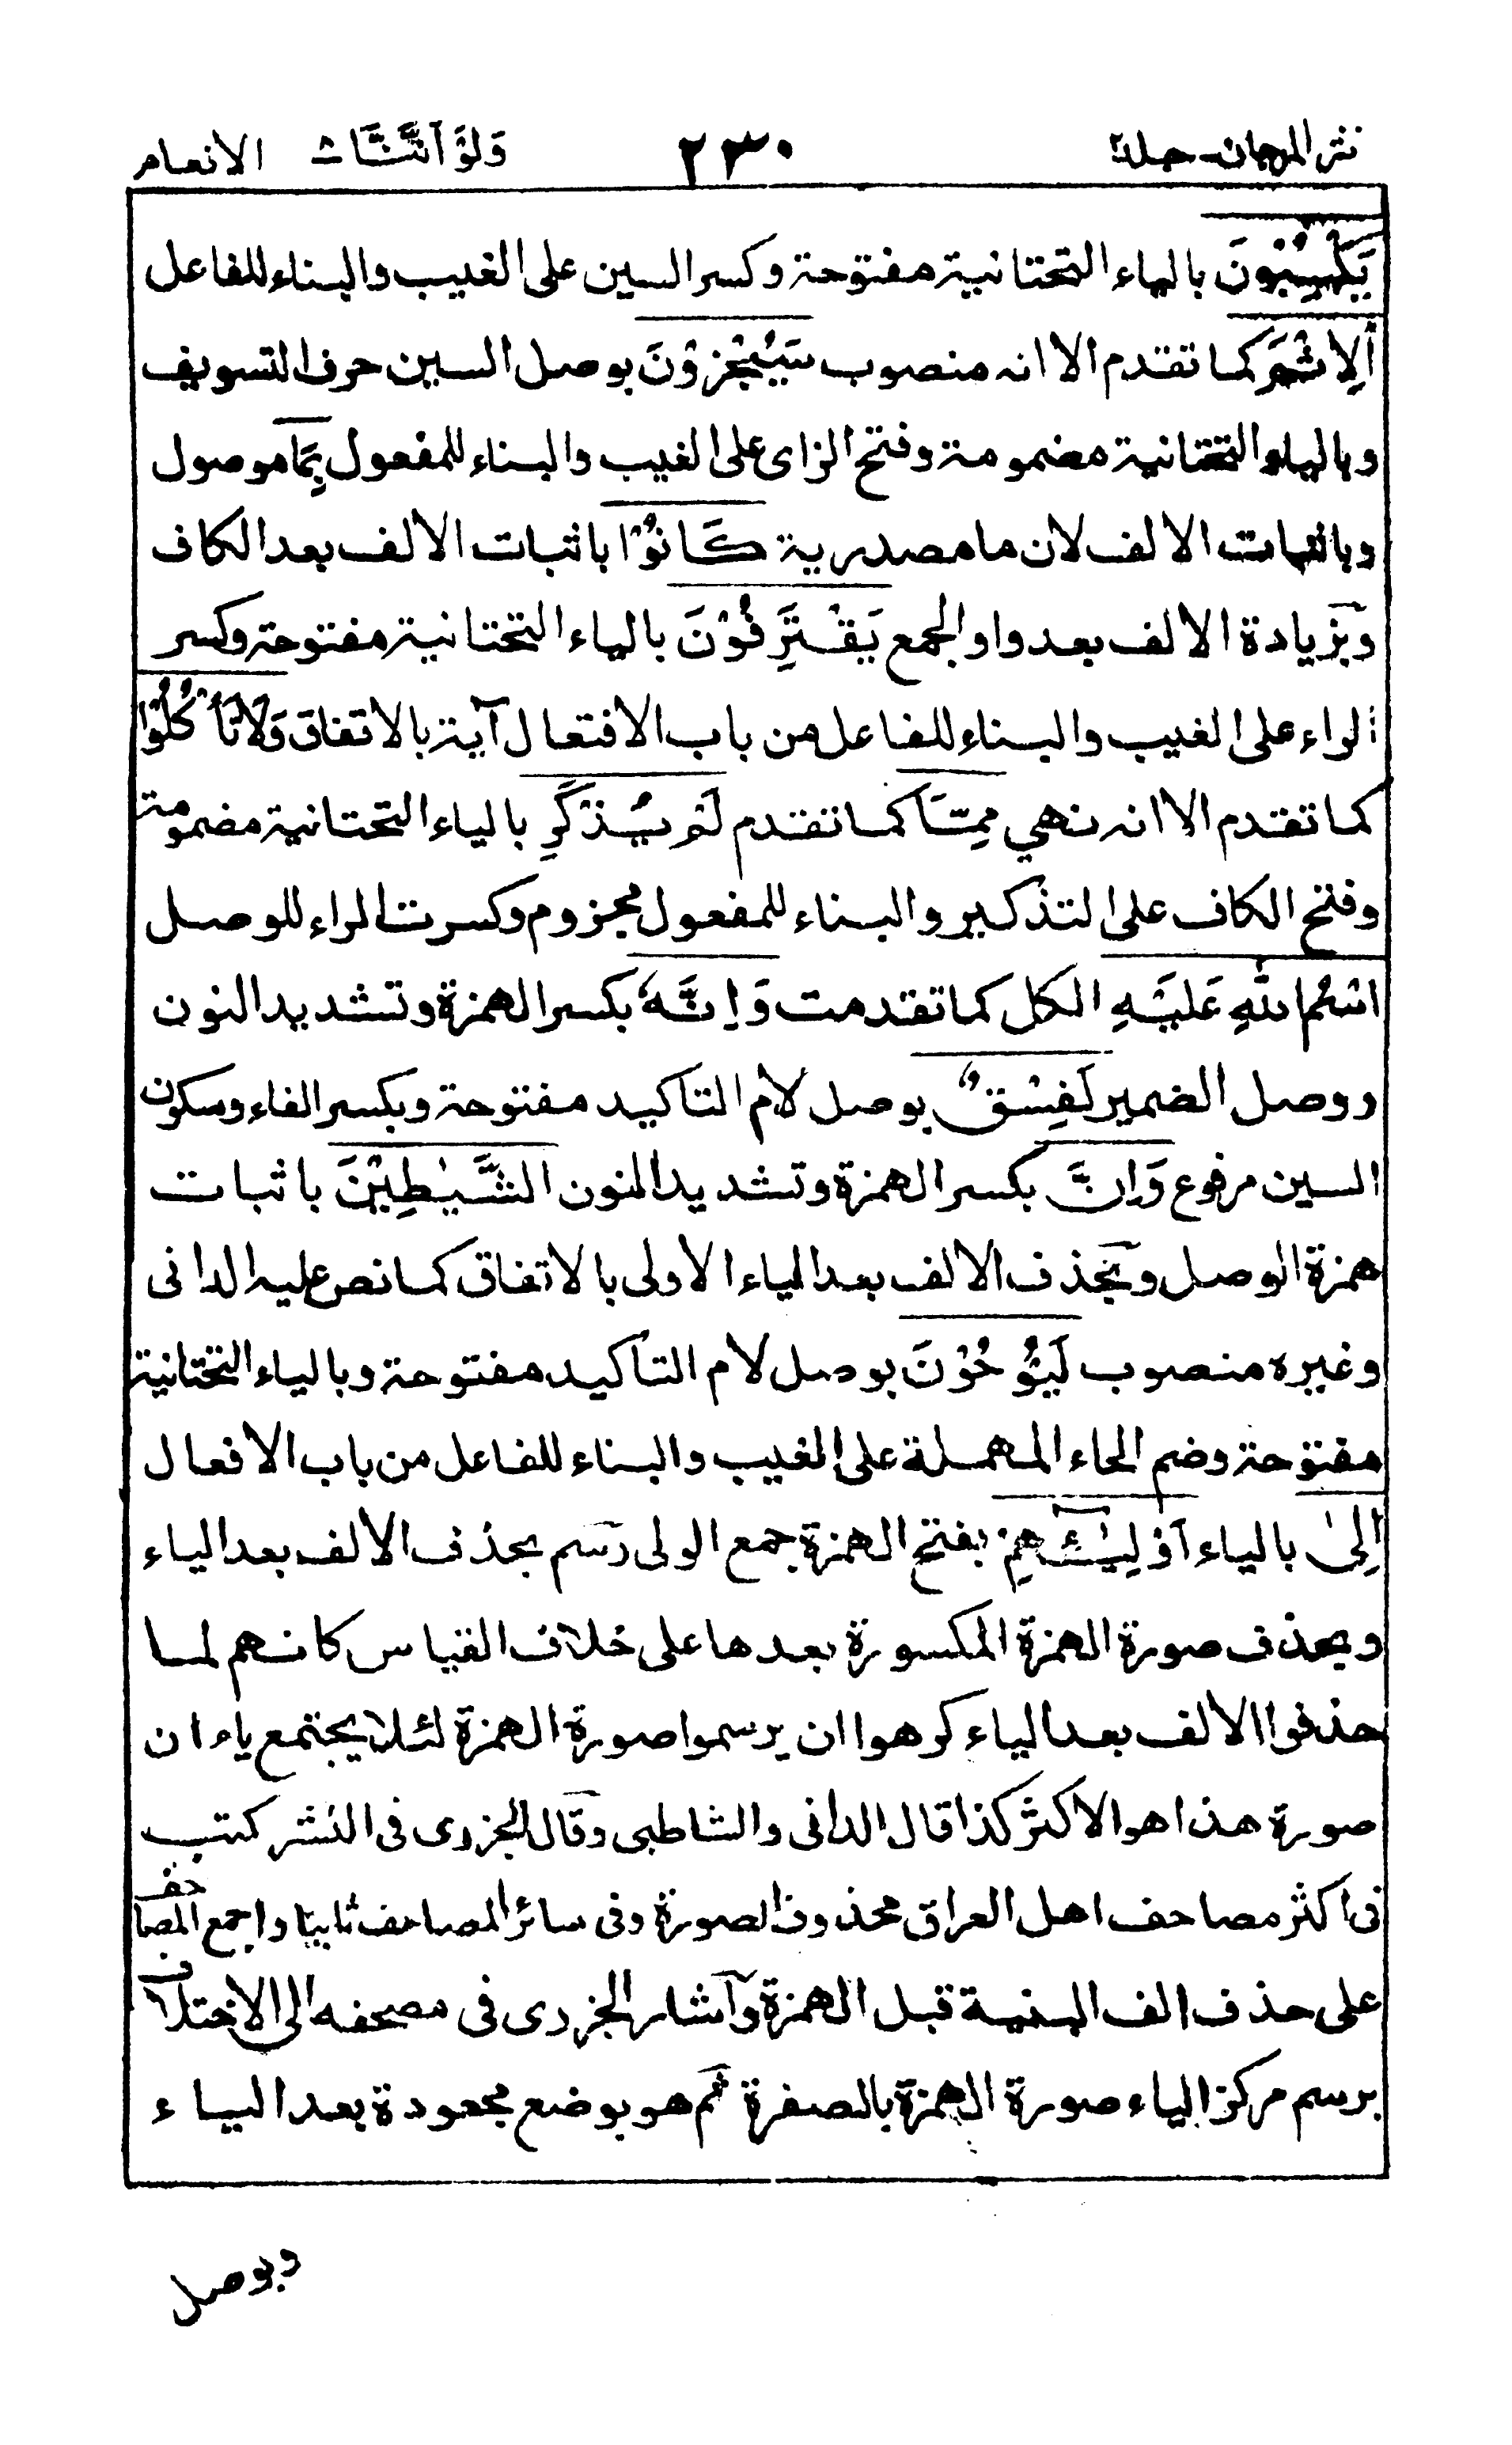 نثر المرجان جلد٢ ٢٣٠ وَلَوْ اَنَّنَا الانعام
يَكْسِبُوْنَ بالياء التحتانية مفتوحة وكسر السين على الغيب والبناء للفاعل
اَلْاِثْمَ كما تقدم الا انه منصوب سَيُجْزَوْنَ بوصل السين حرف التسويف
وبالياء التحتانية مضمومة وفتح الزاى على الغيب والبناء للمفعول بِمَا موصول
وباثبات الالف لان ما مصدرية كَانُوْا باثبات الالف بعد الكاف
وبزيادة الالف بعد واو الجمع يَقْتَرِفُوْنَ بالياء التحتانية مفتوحة وكسر
الراء على الغيب والبناء للفاعل من باب الافتعال آية بالاتفاق وَلَا تَأْكُلُوْا
كما تقدم الا انه نهي مِمَّا كما تقدم لَمْ يُذْكَرِ بالياء التحتانية مضمومة
وفتح الكاف على التذكير والبناء للمفعول مجزوم وكسرت الراء للوصل
اسْمُ اللّٰهِ عَلَيْهِ الكل كما تقدمت وَاِنَّهٗ بكسر الهمزة وتشديد النون
ووصل الضمير لَفِسْقٌ بوصل لام التاكيد مفتوحة وبكسر الفاء وسكون
السين مرفوع وَاِنَّ بكسر الهمزة وتشديد النون الشَّيٰطِيْنَ باثبات
همزة الوصل وبحذف الالف بعد الياء الاولى بالاتفاق كما نص عليه الدانى
وغيره منصوب لَيُوْحُوْنَ بوصل لام التاكيد مفتوحة وبالياء التحتانية
مفتوحة وضم الحاء المهملة على الغيب والبناء للفاعل من باب الافعال
اِلىٰ بالياء اَوْلِيٰٓـئِهِمْ بفتح الهمزة جمع الولى رسم بحذف الالف بعد الياء
وبحذف صورة الهمزة المكسورة بعدها على خلاف القياس كانهم لما
حذفوا الالف بعد الياء كرهوا ان يرسموا صورة الهمزة لئلا يجتمع ياء ان
صورة هذا هو الاكثر كذا قال الدانى والشاطبى وقال الجزرى فى النشر كتب
فى اكثر مصاحف اهل العراق محذوف الصورة وفى سائر المصاحف ثابتا واجمع المصاحف
على حذف الف البنية قبل الهمزة وآشار الجزرى فى مصحفه الى الاختلاف
برسم مركز الياء صورة الهمزة بالصفرة ثم هو بوضع مجعودة بعد الياء
وبوصل